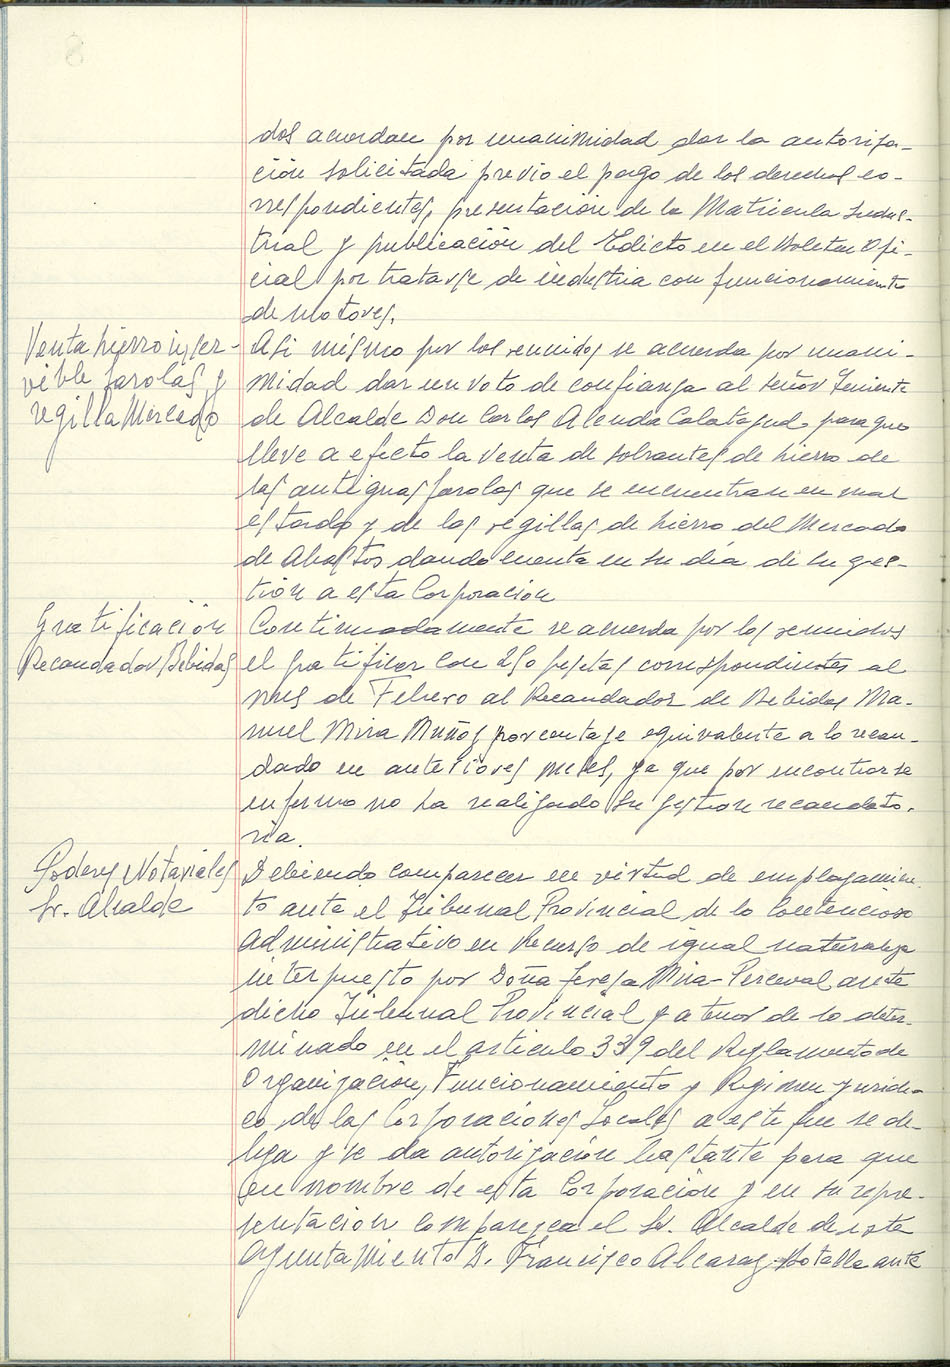 dos acuerdan por unanimidad dar la autoriza-
ción solicitada previo el pago de los derechos co-
rrespondientes, presentación de la Matricula Indus-
trial y publicación del Edicto en el Boletin Ofi-
cial por tratarse de industria con funcionamiento
de motores.
Venta hierro inser-
vible farolas y
regilla Mercado
Asi mismo por los reunidos se acuerda por unani-
midad dar un voto de confianza al señor Teniente
de Alcalde Don Carlos Alenda Calatayud para que
lleve a efecto la venta de sobrantes de hierro de
las antiguas farolas que se encuentran en mal
estado y de las regillas de hierro del Mercado
de Abastos dando cuenta en su dia de su ges-
tión a esta Corporación
Gratificación
Recaudador Bebidas
Continuadamente se acuerda por los reunidos
el gratificar con 250 pesetas correspondientes al
mes de Febrero al Recaudador de Bebidas Ma-
nuel Mira Muñoz porcentaje equivalente a lo recau-
dado en anteriores meses, ya que por encontrarse
enfermo no ha realizado su gestion recaudato-
ria.
Poderes Notariales
Sr. Alcalde
Debiendo comparecer en virtud de emplazamien-
to ante el Tribunal Provincial de lo Contencioso
Administrativo en Recurso de igual naturaleza
interpuesto por Doña Teresa Mira-Perceval ante
dicho Tribunal Provincial y a tenor de lo deter-
minado en el articulo 339 del Reglamento de
Organización, Funcionamiento y Regimen Juridi-
co de las Corporaciones Locales a este fin se de-
lega y se da autorización bastante para que
en nombre de esta Corporación y en su repre-
sentación comparezca el Sr. Alcalde de este
Ayuntamiento D. Francisco Alcaraz Botella ante